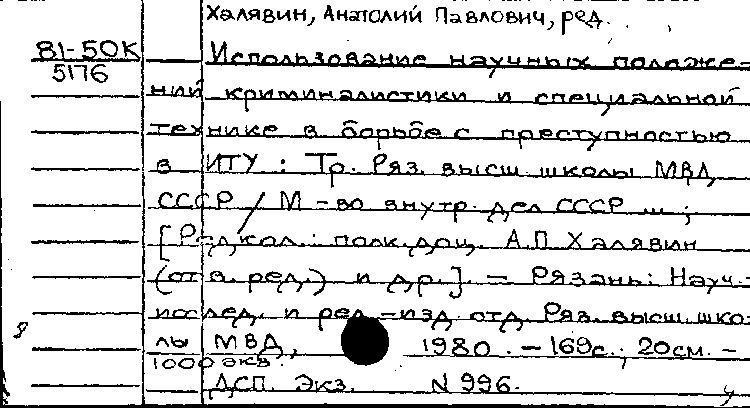 Халявин, Анатолий Павлович, ред.
81-50К
5176
Использование научных положе-
ний криминалистики и специальной
технике в борьбе с преступностью
в ИТУ : Тр. Ряз. высш. школы МВД
СССР / М-во внутр. дел СССР ... ;
[Редкол.: полк. доц. А.П. Халявин
(отв. ред.) и др.]. - Рязань: Науч.-
исслед. и ред.-изд. отд. Ряз. высш. шко-
лы МВД, 1980. - 169с.; 20см. -
1000 экз.
ДСП. Экз. N 996.